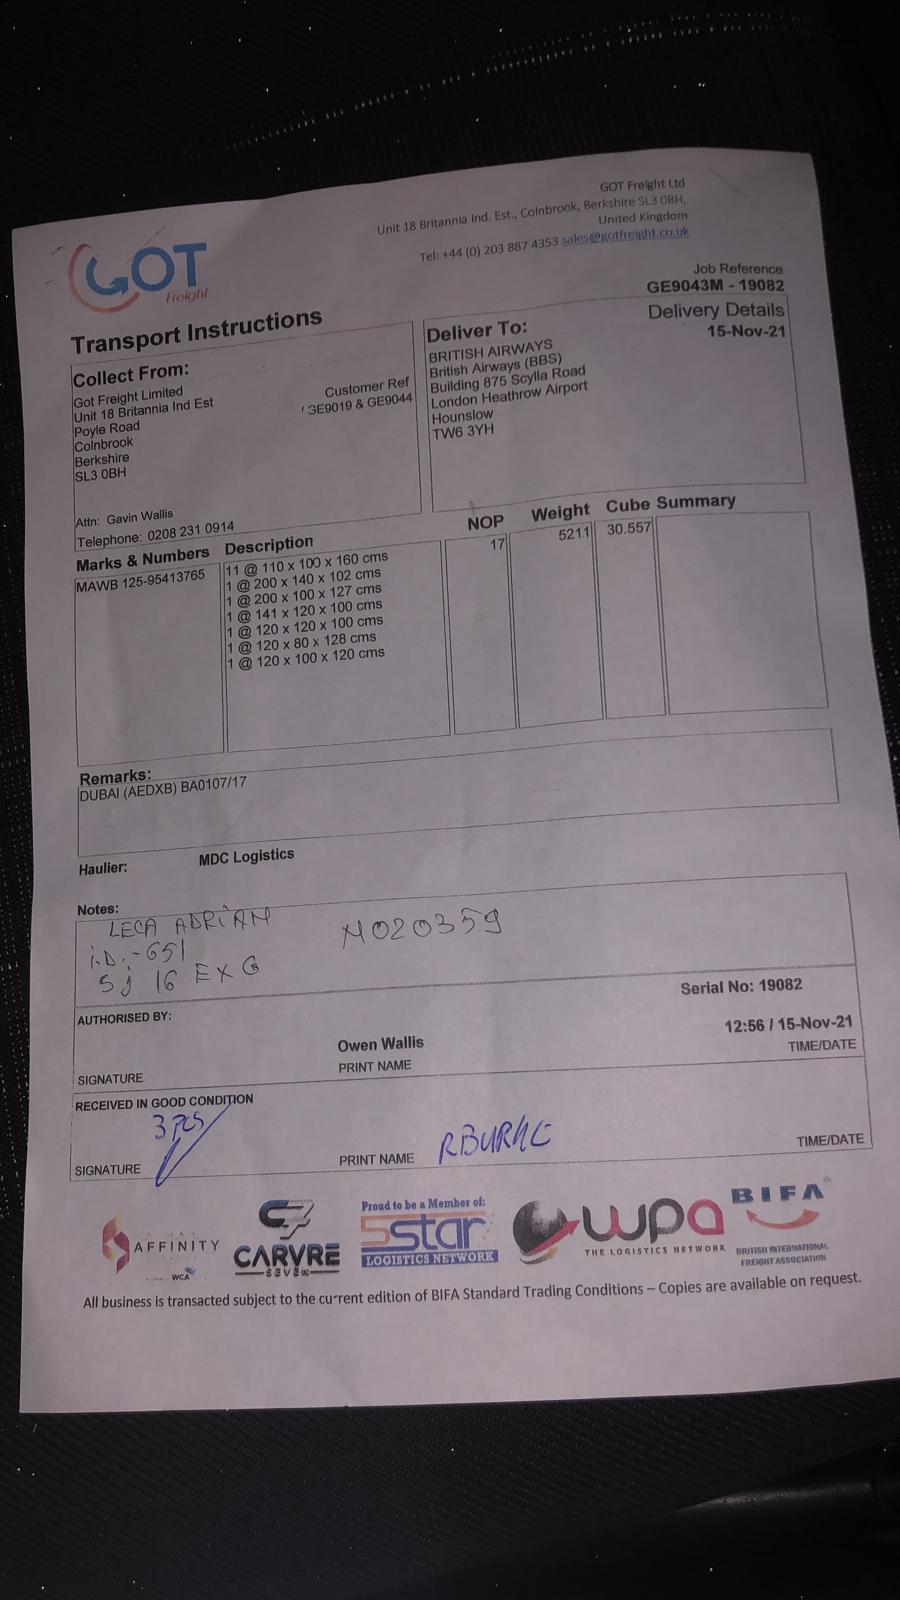 GOT Freight Ltd
Unit 18 Britannia Ind. Est., Colnbrook, Berkshire SL3 0BH,
United Kingdom
Tel: +44 (0) 203 887 4353 sales@gotfreight.co.uk
GOT
Freight
Job Reference
GE9043M - 19082
Transport Instructions
Delivery Details
15-Nov-21
Collect From:
Got Freight Limited
Unit 18 Britannia Ind Est
Poyle Road
Colnbrook
Berkshire
SL3 0BH
Customer Ref
GE9019 & GE9044
Attn: Gavin Wallis
Telephone: 0208 231 0914
Deliver To:
BRITISH AIRWAYS
British Airways (BBS)
Building 875 Scylla Road
London Heathrow Airport
Hounslow
TW6 3YH
Marks & Numbers Description NOP Weight Cube Summary
MAWB 125-95413765 11 @ 110 x 100 x 160 cms 17 5211 30.557
1 @ 200 x 140 x 102 cms
1 @ 200 x 100 x 127 cms
1 @ 141 x 120 x 100 cms
1 @ 120 x 120 x 100 cms
1 @ 120 x 80 x 128 cms
1 @ 120 x 100 x 120 cms
Remarks:
DUBAI (AEDXB) BA0107/17
Haulier: MDC Logistics
Notes:
LECA ADRIAN M020359
i.D.-651
Sj 16 EXG
Serial No: 19082
AUTHORISED BY:
Owen Wallis 12:56 / 15-Nov-21
SIGNATURE PRINT NAME TIME/DATE
RECEIVED IN GOOD CONDITION
3 PCS
SIGNATURE PRINT NAME RBURKE TIME/DATE
AFFINITY
WCA
CARVRE
Proud to be a Member of:
5star
LOGISTICS NETWORK
wpa
THE LOGISTICS NETWORK
BIFA
BRITISH INTERNATIONAL
FREIGHT ASSOCIATION
All business is transacted subject to the current edition of BIFA Standard Trading Conditions – Copies are available on request.